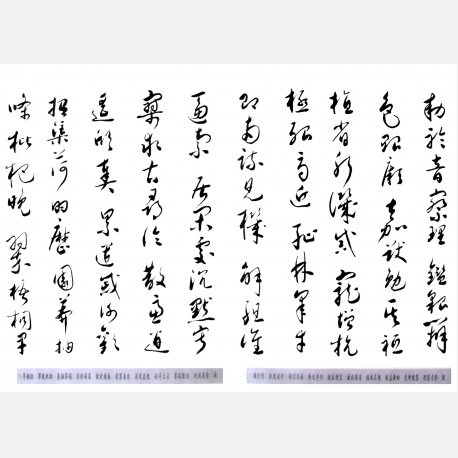 勑聆音察理鑑貌辯
色貽厥嘉猷勉其祗
植省躬譏誡寵增抗
極殆辱近恥林皋幸
即兩疏見機解組誰
逼索居閑處沉默寂
寥求古尋論散慮逍
遙欣奏累遣慼謝歡
招渠荷的歷園莽抽
條枇杷晚翠梧桐早